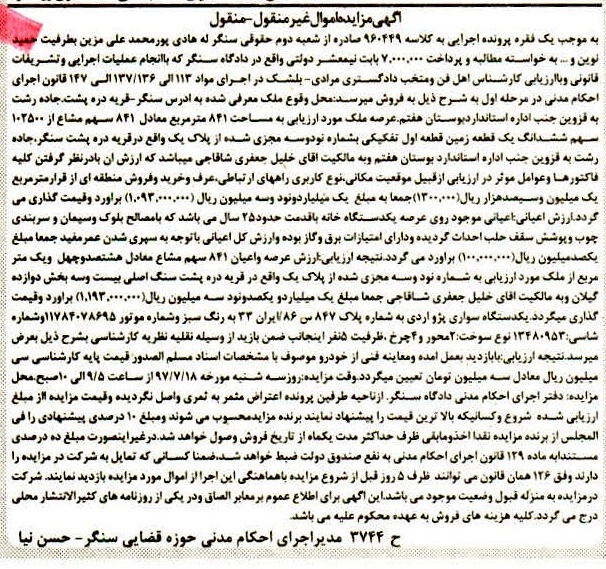 آگهی مزایده اموال غیر منقول-منقول
به موجب یک فقره پرونده اجرایی به کلاسه ۹۶۰۴۴۹ صادره از شعبه دوم حقوقی سنگر له هادی پورمحمد علی مزین بطرفیت حمید
نوین و ... به خواسته مطالبه و پرداخت ۷,۰۰۰,۰۰۰ بابت نیمعشر دولتی واقع در دادگاه سنگر که باانجام عملیات اجرایی وتشریفات
قانونی وباارزیابی کارشناس اهل فن ومنتخب دادگستری مرادی- بلشک در اجرای مواد ۱۱۳ الی ۱۳۷/۱۳۶ الی ۱۴۷ قانون اجرای
احکام مدنی در مرحله اول به شرح ذیل به فروش میرسد:محل وقوع ملک معرفی شده به ادرس سنگر-قریه دره پشت.جاده رشت
به قزوین جنب اداره استانداردبوستان هفتم.عرصه ملک مورد ارزیابی به مساحت ۸۴۱ مترمربع معادل ۸۴۱ سهم مشاع از ۱۰۲۵۰۰
سهم ششدانگ یک قطعه زمین قطعه اول تفکیکی بشماره نودوسه مجزی شده از پلاک یک واقع درقریه دره پشت سنگر.جاده
رشت به قزوین جنب اداره استاندارد بوستان هفتم وبه مالکیت اقای خلیل جعفری شاقاجی میباشد که ارزش ان بادرنظر گرفتن کلیه
فاکتورها وعوامل موثر در ارزیابی ازقبیل موقعیت مکانی،نوع کاربری راههای ارتباطی،عرف وخرید وفروش منطقه ای از قرارمترمربع
یک میلیون وسیصدهزار ریال(۱۳۰۰/۰۰۰)جمعا به مبلغ یک میلیاردونود وسه میلیون ریال(۱,۰۹۳,۰۰۰,۰۰۰) براورد وقیمت گذاری می
گردد.ارزش اعیانی:اعیانی موجود روی عرصه یکدستگاه خانه باقدمت حدود۲۵ سال می باشد که بامصالح بلوک وسیمان و سربندی
چوب وپوشش سقف حلب احداث گردیده ودارای امتیازات برق وگاز بوده وارزش کل اعیانی باتوجه به سپری شدن عمرمفید جمعا مبلغ
یکصدمیلیون ریال(۱۰۰,۰۰۰,۰۰۰) براورد می گردد.نتیجه ارزیابی:ارزش عرصه واعیان ۸۴۱ سهم مشاع معادل هشتصدوچهل ویک متر
مربع از ملک مورد ارزیابی به شماره نود وسه مجزی شده از پلاک یک واقع در قریه دره پشت سنگ اصلی بیست وسه بخش دوازده
گیلان وبه مالکیت اقای خلیل جعفری شاقاجی جمعا مبلغ یک میلیاردو یکصدونود سه میلیون ریال(۱,۱۹۳,۰۰۰,۰۰۰) براورد وقیمت
گذاری میگردد.یکدستگاه سواری پژو اردی به شماره پلاک ۸۴۷ س ۸۶/ایران ۳۳ به رنگ سبز وشماره موتور ۱۱۷۸۴۰۷۸۶۹۵وشماره
شاسی:۱۳۴۸۰۹۵۳ نوع سوخت:۲محور و۴چرخ ،ظرفیت ۵نفر اینجانب ضمن بازید از وسیله نقلیه نظریه کارشناسی بشرح ذیل بعرض
میرسد.نتیجه ارزیابی:بابازدید بعمل امده ومعاینه فنی از خودرو موصوف با مشخصات اسناد مسلم الصدور قیمت پایه کارشناسی سی
میلیون ریال معادل سه میلیون تومان تعیین میگردد.وقت مزایده:روزسه شنبه مورخه ۹۷/۷/۱۸ از ساعت ۹/۵ الی ۱۰صبح،محل
مزایده: دفتر اجرای احکام مدنی دادگاه سنگر. ازناحیه طرفین پرونده اعتراض مثمر به ثمری واصل نگردیده وقیمت مزایده ااز مبلغ
ارزیابی شده شروع وکسانیکه بالا ترین قیمت را پیشنهاد نمایند برنده مزایدهمحسوب می شوند ومبلغ ۱۰ درصدی پیشنهادی را فی
المجلس از برنده مزایده نقدا اخذومابقی ظرف حداکثر مدت یکماه از تاریخ فروش وصول خواهد شد.درغیراینصورت مبلغ ده درصدی
مستندابه ماده ۱۲۹ قانون اجرای احکام مدنی به نفع صندوق دولت ضبط خواهد شد،ضمنا کسانی که تمایل به شرکت در مزایده را
دارند وفق ۱۲۶ همان قانون می توانند ظرف ۵ روز قبل از شروع مزایده باهماهنگی این اجرا از اموال مورد مزایده بازدید نمایند. شرکت
درمزایده به منزله قبول وضعیت موجود می باشد.این آگهی برای اطلاع عموم برمعابر الصاق ودر یکی از روزنامه های کثیرالانتشار محلی
درج می گردد.کلیه هزینه های فروش به عهده محکوم علیه می باشد.
ح ۳۷۴۴ مدیراجرای احکام مدنی حوزه قضایی سنگر- حسن نیا